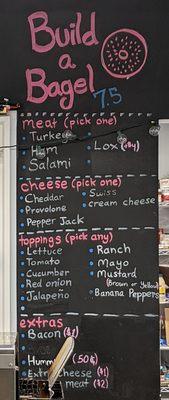 Build
a
Bagel 7.5
meat (pick one)
Turkey
Ham
Lox (+$4)
Salami
cheese (pick one)
Cheddar
Swiss
Provolone
cream cheese
Pepper Jack
toppings (pick any)
Lettuce
Ranch
Tomato
Mayo
Cucumber
Mustard
(Brown or Yellow)
Red onion
Banana Peppers
Jalapeño
extras
Bacon ($1)
Humm (50¢)
Extra cheese ($1)
meat ($2)